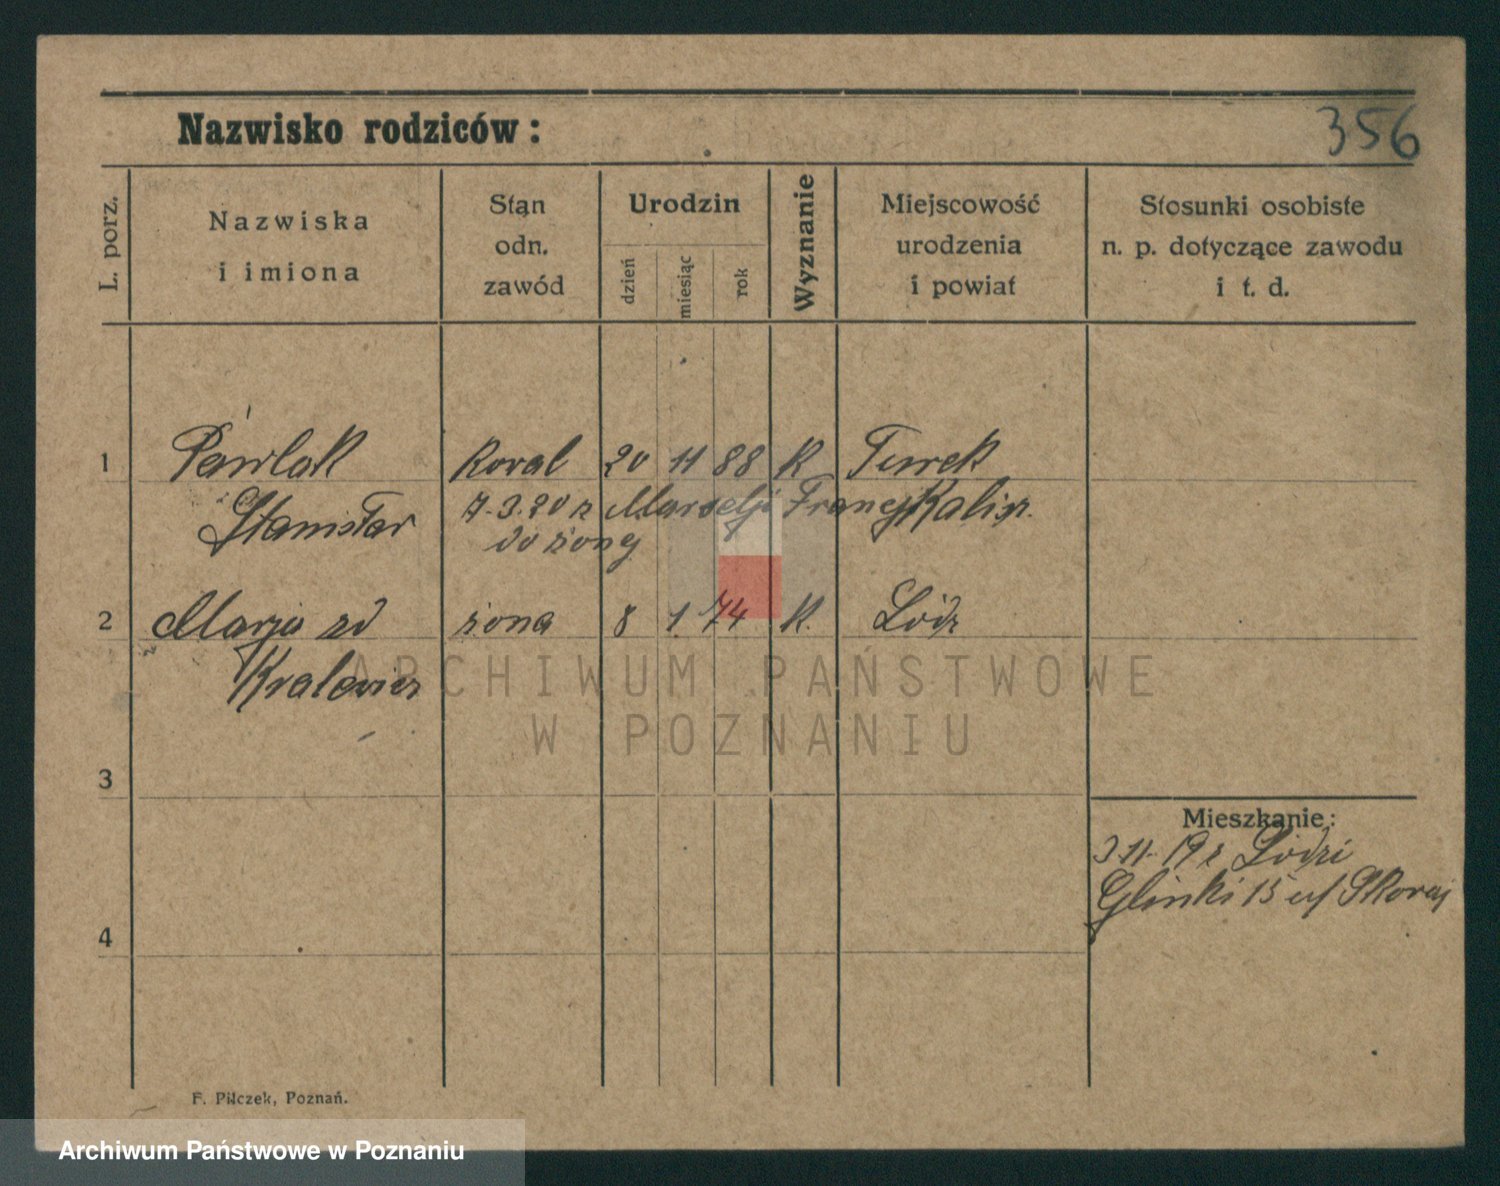 356
Nazwisko rodziców:
L. porz.
Nazwiska
i imiona
Stan
odn.
zawód
Urodzin
dzień
miesiąc
rok
Wyznanie
Miejscowość
urodzenia
i powiat
Stosunki osobiste
n. p. dotyczące zawodu
i t. d.
1 Pawlak Koval 20 11 88 K Turek
Stanisław 7.3.20 z Marselji Francj Kalisz.
do żonej
2 Marja zd żona 8 1 74 K. Łódz
ARCHIWUM PAŃSTWOWE
W POZNANIU
3
Mieszkanie:
3.11.19 z Łodzi
Glinki 15 u/
4
F. Pilczek, Poznań.
Archiwum Państwowe w Poznaniu